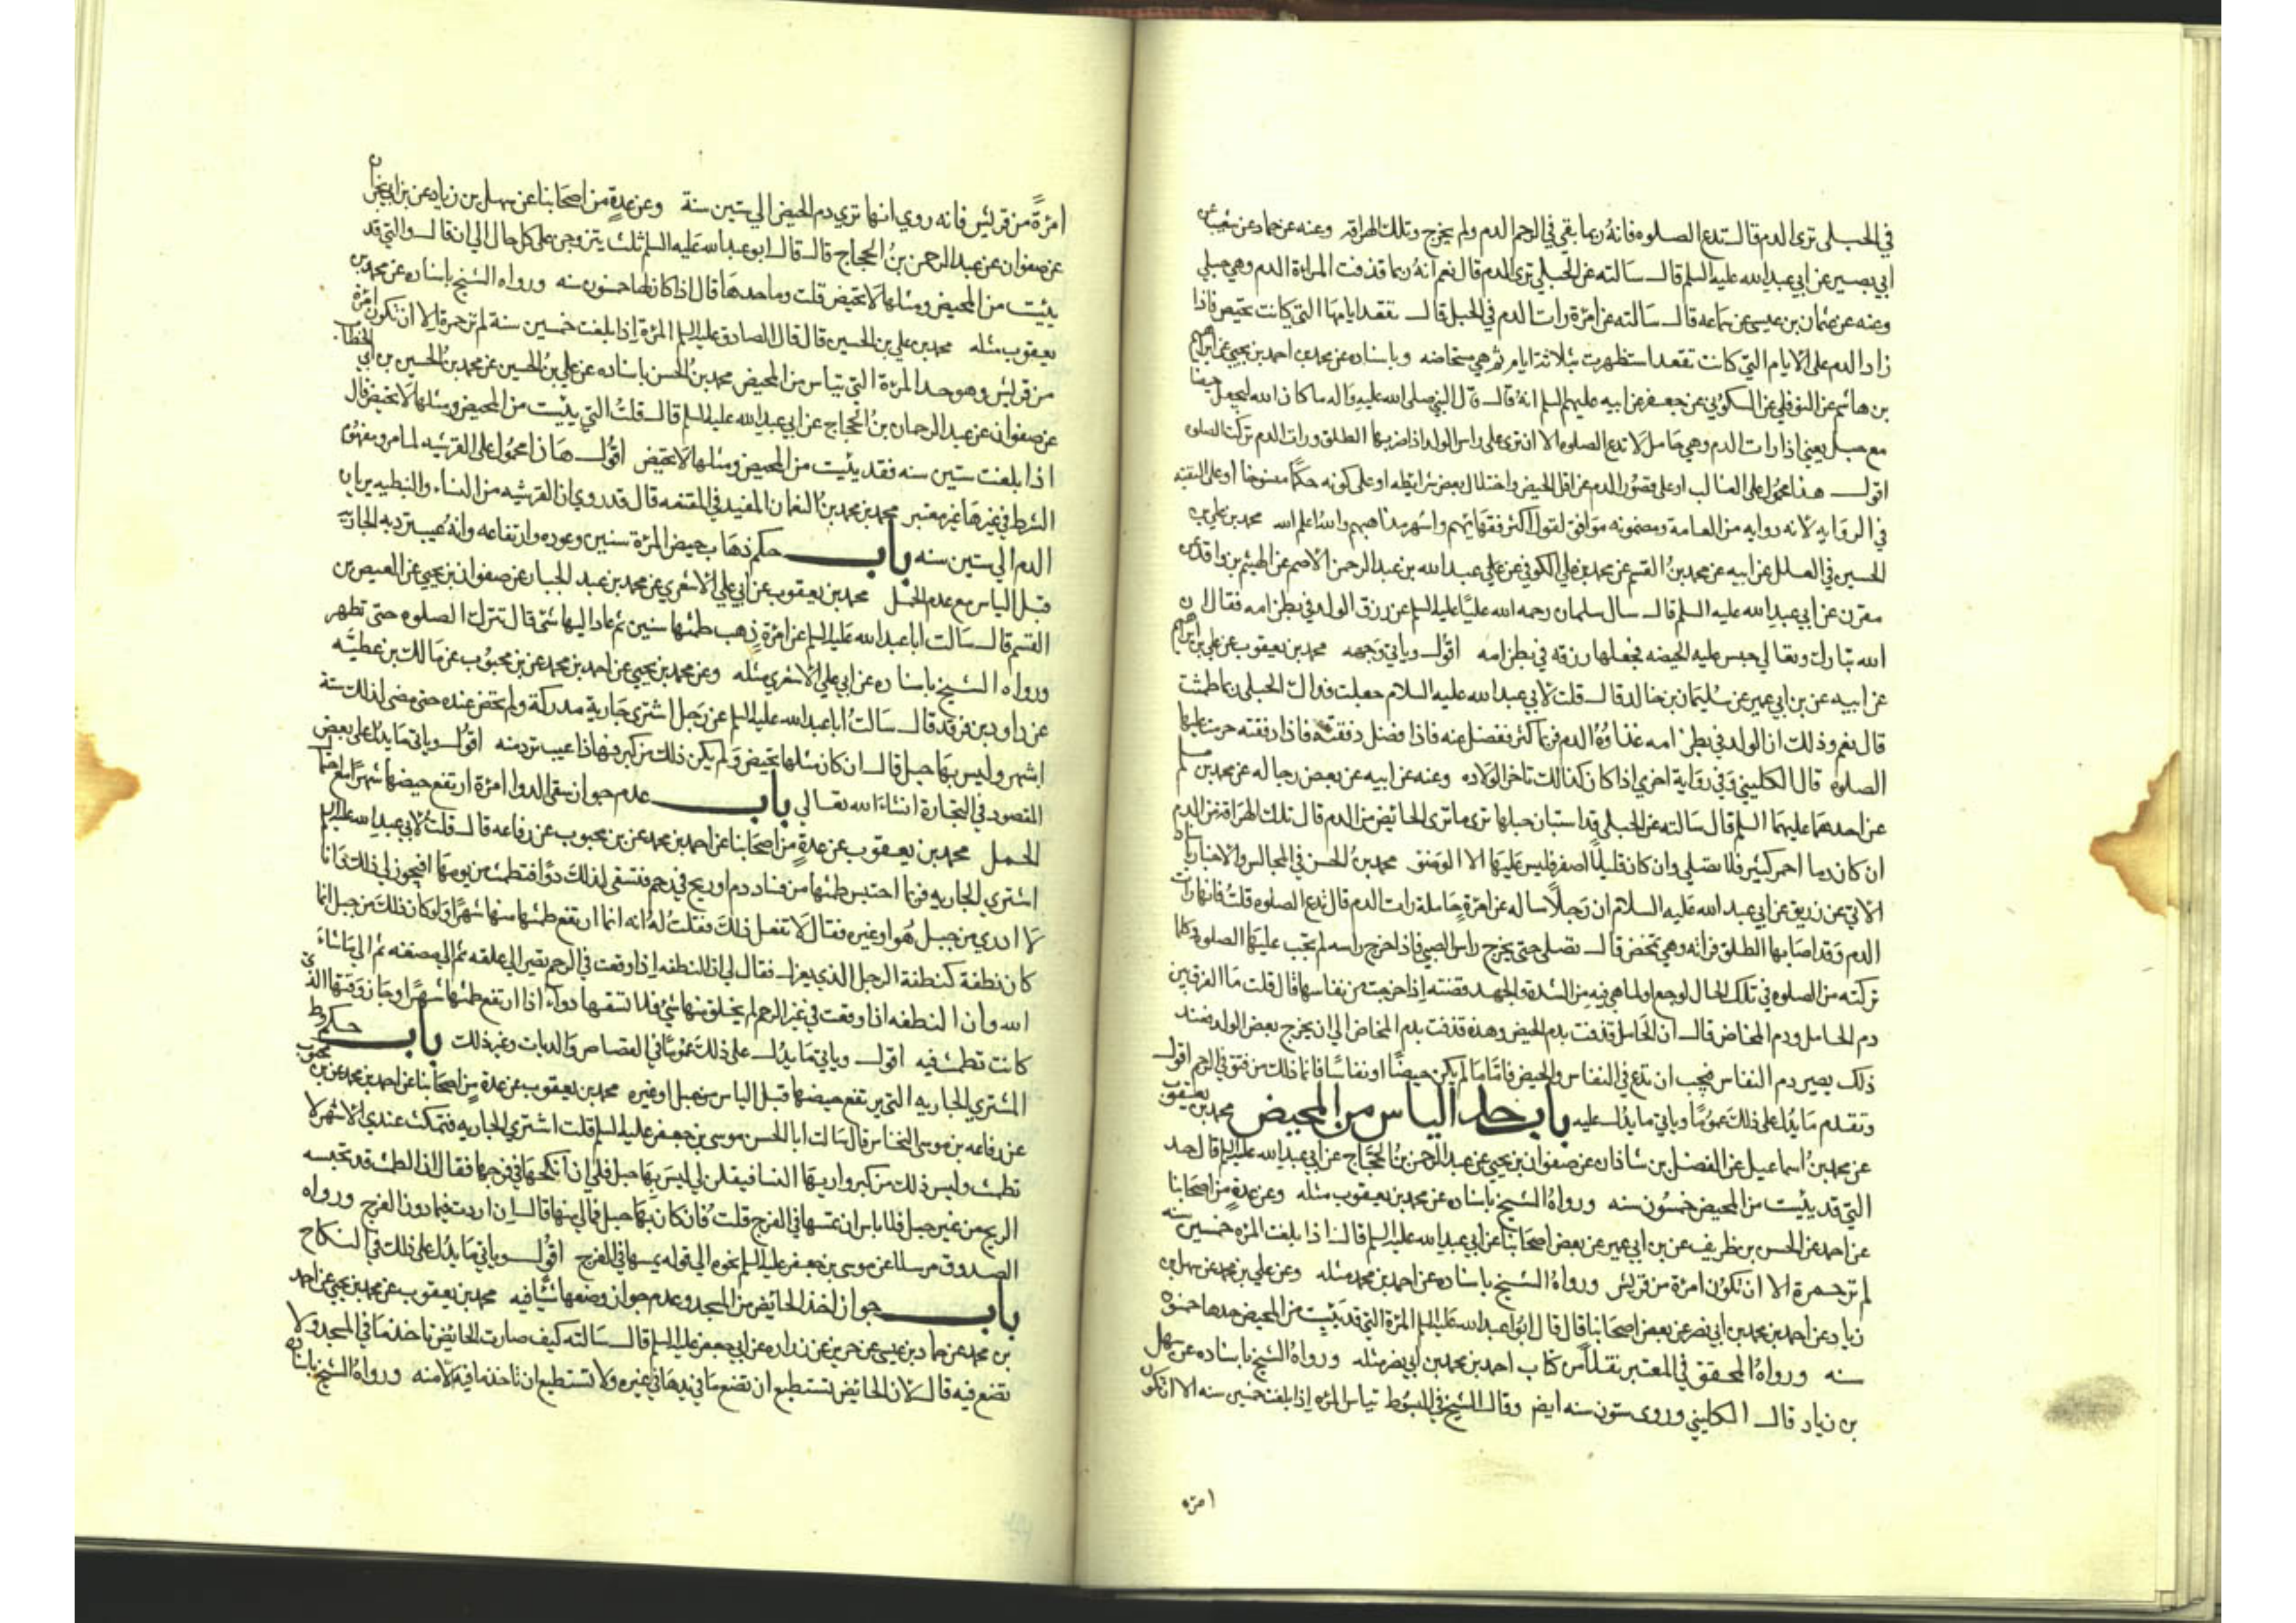 في الحبلى ترى الدم قال تدع الصلوه فانهُ ربما بقي في الرحم الدم ولم يخرج وتلك الهراقه وعنه عن حماد عن شعيب عن
ابي بصير عن ابي عبد الله عليه السلم قال سالته عن الحبلي ترى الدم قال نعم انهُ ربما قذفت المراة الدم وهي حبلي
وعنه عن عثمان بن عيسى عن سماعه قال سالته عن امرة رات الدم في الحبل قال تقعد ايامها التي كانت تحيض فاذا
زاد الدم على الايام التي كانت تقعد استظهرت بثلاثة ايام ثم هي مستحاضه وباسناده عن محمد بن احمد بن يحيي عن ابراهيم
بن هاشم عن النوفلي عن السكوني عن جعفر عن ابيه عليهم السلم انهُ قال قال النبي صلى الله عليه واله ما كان الله ليجعل حيضا
مع حبل يعني اذا رات الدم وهي حامل لا تدع الصلوه الا ان ترى على راس الولد اذا ضربها الطلق ورات الدم تركت الصلوه
اقول هذا محمول على الغالب او على قصور الدم عن اقل الحيض واختلال بعض شرايطه او على كونه حكما منسوخا او على التقيه
في الروايه لانه روايه من العامة ومضمونه موافق لقول اكثر فقهائهم واشهر مذاهبهم والله اعلم الله محمد بن علي بن
الحسين في العلل عن ابيه عن محمد بن القسم عن محمد بن علي الكوفي عن علي عبد الله بن عبد الرحمن الاصم عن الهيثم بن واقد عن
مقرن عن ابي عبد الله عليه السلم قال سال سلمان رحمه الله عليّا عليه السلم عن رزق الولد في بطن امه فقال ان
الله تبارك وتعالي حبس عليه الحيضه فجعلها رزقه في بطن امه اقول وياتي وجهه محمد بن يعقوب عن علي بن ابراهيم
عن ابيه عن بن ابي عمير عن سليمان بن خالد قال قلت لابي عبد الله عليه السلام جعلت فداك الحبلى ربما طمثت
قال نعم وذلك ان الولد في بطن امه غذاؤهُ الدم فربما كثر ففضل عنه فاذا فضل دفقته فاذا دفقته حرمت عليها
الصلوة قال الكليني وفي رواية اخري اذا كان كذلك تاخر الولاده وعنه عن ابيه عن بعض رجاله عن محمد بن مسلم
عن احدهما عليهما السلم قال سالته عن الحبلى قد استبان حبلها ترى ما ترى الحائيض من الدم قال تلك الهراقة من الدم
ان كان دما احمر كثير فلا تصلي وان كان قليلاً اصفر فليس عليها الا الوضوء محمد بنُ الحسن في المجالس والاخبار باسناده
الاتي عن زريق عن ابي عبد الله عليه السلام ان رجلاً ساله عن امرة حاملة رات الدم قال تدع الصلوه قلتُ فانها رات
الدم وقد اصابها الطلق فراته وهي تمخض قال تصلى حتى يخرج راس الصبي فاذا خرج راسه لم تجب عليها الصلوة وكلما
تركته من الصلوه في تلك الحال لوجع او لما هي فيه من الشدة والجهد قضته اذا خرجت من نفاسها قال قلت ما الفرق بين
دم الحامل ودم المخاض قال ان الحامل قذفت بدم الحيض وهذه قذفت بدم المخاض الى ان يخرج بعض الولد فعند
ذلك يصير دم النفاس فيجب ان تدع في النفاس والحيض فاما ما لم يكن حيضا او نفاسا فانما ذلك من فتق في الرحم اقول
وتقدم ما يدل على ذلك عموما وياتي ما يدل عليه باب حد الياس من المحيض محمد بن يعقوب
عن محمد بن اسماعيل عن الفضل بن شاذان عن صفوان بن يحيى عن عبد الرحمن بن الحجاج عن ابي عبد الله عليه السلم قال حد
التي قد يئيست من المحيض خمسون سنه ورواهُ الشيخ باسناده عن محمد بن يعقوب مثله وعن عدة من اصحابنا
عن احمد عن الحسن بن ظريف عن بن ابي عمير عن بعض اصحابنا عن ابي عبد الله عليه السلم قال اذا بلغت المره خمسين سنه
لم تر حمرة الا ان تكون امرة من قريش ورواهُ الشيخ باسناده عن احمد بن محمد مثله وعن علي بن محمد عن سهل بن
زياد عن احمد بن محمد بن ابي نصر عن بعض اصحابنا قال قال ابو عبد الله عليه السلم المرة التي قد يئيست من المحيض حدها خمسون
سنه ورواهُ المحقق في المعتبر نقلاً من كتاب احمد بن محمد بن ابي نصر مثله ورواهُ الشيخ باسناده عن سهل
بن زياد قال الكليني وروى ستون سنه ايضا وقال الشيخ في المبسوط تياس المره اذا بلغت خمسين سنه الا ان تكون
امره
امرةً من قريش فانه روي انها تري دم الحيض الي ستين سنة وعن عدة من اصحابنا عن سهل بن زياد عن بن ابي نجران
عن صفوان عن عبد الرحمن بنُ الحجاج قال قال ابو عبد الله عليه السلم ثلث يتزوجن على كل حال الي ان قال والتي قد
يئيست من المحيض ومثلها لا تحيض قلت وما حدها قال اذا كان لها خمسون سنه ورواه الشيخ باسناده عن محمد بن
يعقوب مثله محمد بن علي بن الحسين قال قال الصادق عليه السلم المرة اذا بلغت خمسين سنة لم تر حمرة الا ان تكون امرة
من قريش وهو حد المرة التي تياس من المحيض محمد بنُ الحسن باسناده عن علي بن الحسين عن محمد بن الحسين بن ابي الخطاب
عن صفوان عن عبد الرحمان بن الحجاج عن ابي عبد الله عليه السلم قال قلتُ التي يئيست من المحيض ومثلها لا تحيض قال
اذا بلغت ستين سنه فقد يئيست من المحيض ومثلها لا تحيض اقول هذا محمول على القرشيه لما مر ومفهوم
الشرط في غيرها غير معتبر محمد بن محمد بن النعمان المفيد في المقنعه قال قد روي ان القرشيه من النساء والنبطيه يريان
الدم الي ستين سنه باب حكم ذهاب حيض المرة سنين وعوده وارتفاعه وانهُ عيب ترد به الجاريه
قبل الياس مع عدم الحمل محمد بن يعقوب عن ابي علي الاشعري عن محمد بن عبد الجبار عن صفوان بن يحيي عن العيص بن
القسم قال سالت ابا عبد الله عليه السلم عن امرةٍ ذهب طمثها سنين ثم عاد اليها شيء قال تترك الصلوه حتى تطهر
ورواه الشيخ باسناده عن ابي علي الاشعري مثله وعن محمد بن يحيي عن احمد بن محمد عن بن محبوب عن مالك بن عطيه
عن داود بن فرقد قال سالتُ ابا عبد الله عليه السلم عن رجل اشترى جارية مدركة ولم تحض عنده حتى مضى لذلك ستة
اشهر وليس بها حبل قال ان كان مثلها تحيض ولم يكن ذلك من كبر فهذا عيب ترد منه اقول وياتي ما يدل على بعض
المقصود في التجارة انشاء الله تعالي باب عدم جواز سقي الدوا امرة ارتفع حيضها شهرا مع احتمال
الحمل محمد بن يعقوب عن عدةٍ من اصحابنا عن احمد بن محمد عن بن محبوب عن رفاعه قال قلتُ لابي عبد الله عليه السلم
اشتري الجاريه فربما احتبس طمثها من فساد دم او ريح في رحم فتسقى لذلك دواً فتطمث من يومها افيجوز لي ذلك وانا
لا ادري من حبل هُو او غيره فقال لا تفعل ذلك فقلت لهُ انه انما ارتفع طمثها منها شهرا ولو كان ذلك من حبل انما
كان نطفة كنطفة الرجل الذي يعزل فقال لي ان النطفه اذا وقعت في الرحم تصير الي علقه ثم الي مضغه ثم الي ما شاء
الله وان النطفه اذا وقعت في غير الرحم لم يخلق منها شيء فلا تسقها دواء اذا ارتفع طمثها شهرا وجاز وقتها الذي
كانت تطمث فيه اقول وياتي ما يدل على ذلك عموما في القصاص والديات وغير ذلك باب حكم وط
المشتري الجاريه التي يرتفع حيضها قبل الياس من حبل او غيره محمد بن يعقوب عن عدة من اصحابنا عن احمد بن محمد عن بن محبوب
عن رفاعه بن موسى النخاس قال سالت ابا الحسن موسى بن جعفر عليه السلم قلت اشتري الجاريه فتمكث عندي الاشهر لا
تطمث وليس ذلك من كبر واريها النسا فيقلن لي ليس بها حبل فلي ان انكحها في فرجها فقال ان الطمث قد تحبسه
الريح من غير حبل فلا باس ان تمسها في الفرج قلت فان كان بها حبل فما لي منها قال ان اردت فيما دون الفرج ورواه
الصدوق مرسلا عن موسى بن جعفر عليه السلم نحوه الي قوله يمسها في الفرج اقول وياتي ما يدل على ذلك في النكاح
باب جواز اخذ الحائيض من المسجد وعدم جواز وضعها شيا فيه محمد بن يعقوب عن محمد بن يحيي عن احمد
بن محمد عن حماد بن عيسى عن حريز عن زراره عن ابي جعفر عليه السلم قال سالته كيف صارت الحائيض تاخذ ما في المسجد ولا
تضع فيه قال لان الحائيض تستطيع ان تضع ما في يدها في غيره ولا تستطيع ان تاخذ ما فيه الا منه ورواه الشيخ باسناده